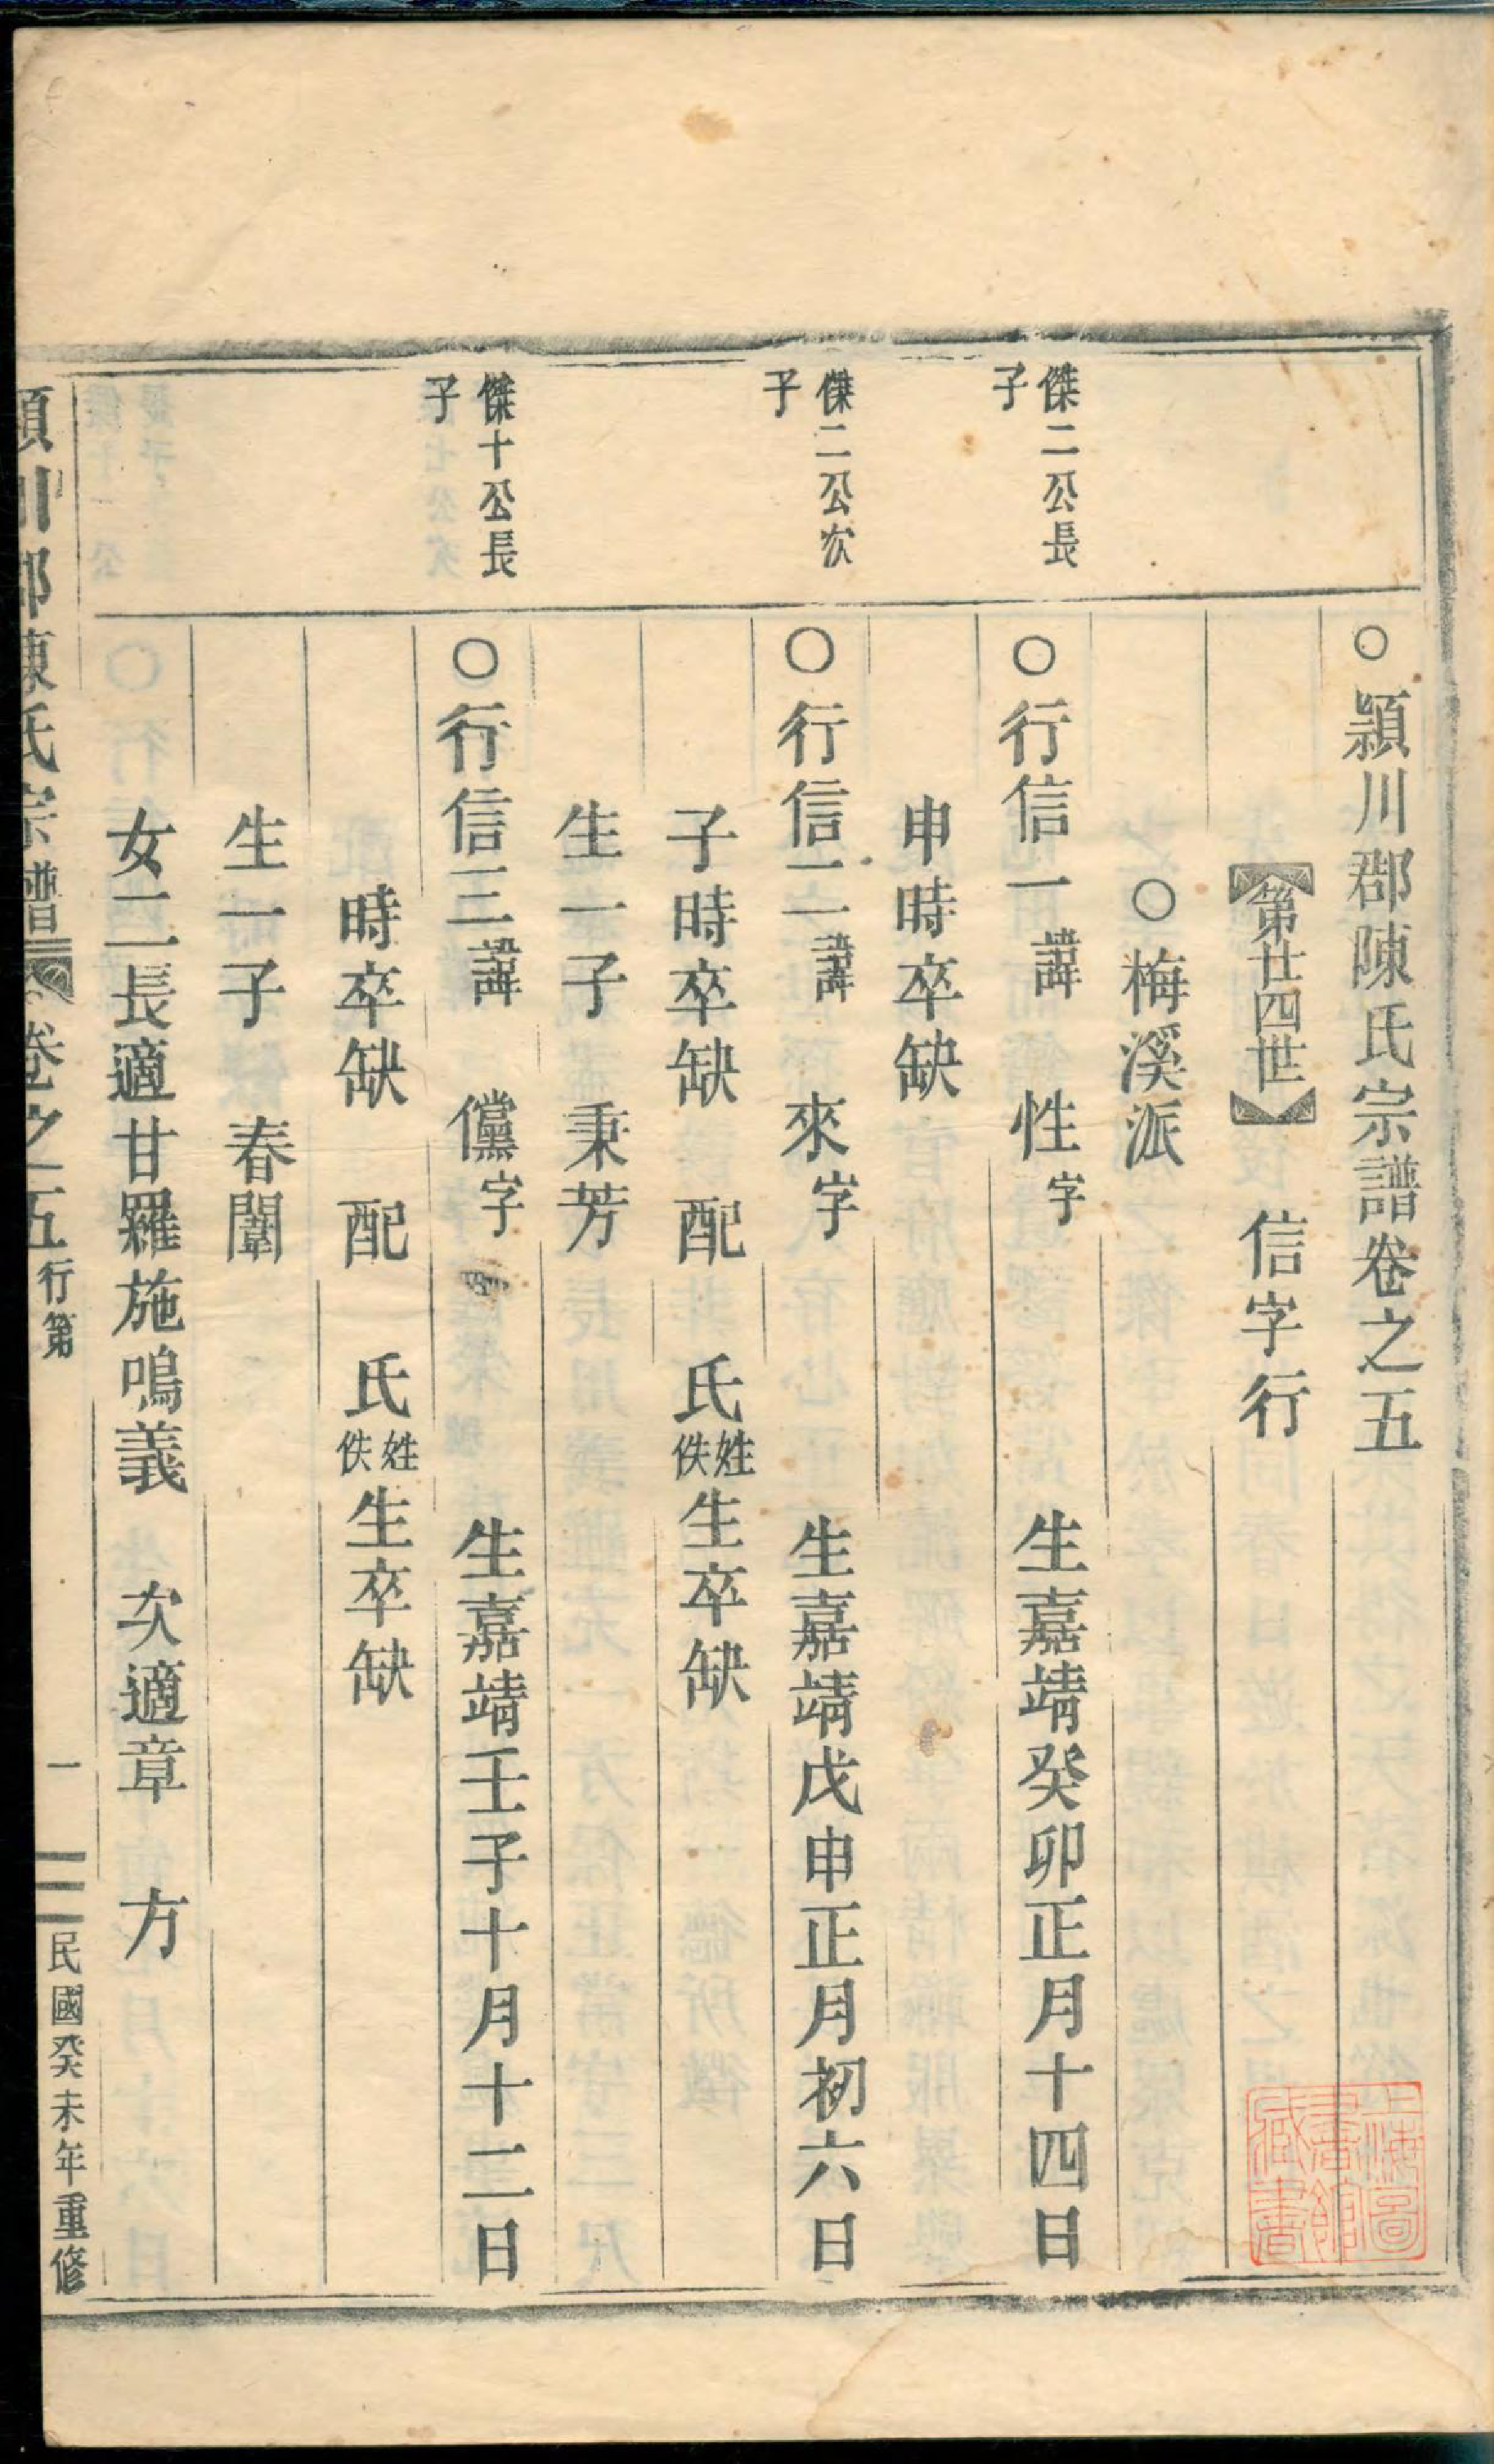 ○穎川郡陳氏宗譜卷之五
【第廿四世】 信字行
○梅溪派
傑二公長子
○行信一諱 性字 生嘉靖癸卯正月十四日
申時卒缺
傑二公次子
○行信二諱 來字 生嘉靖戊申正月初六日
子時卒缺 配 氏姓佚生卒缺
生一子 秉芳
傑十公長子
○行信三諱 儻字 生嘉靖壬子十月十二日
時卒缺 配 氏姓佚生卒缺
生一子 春闈
女二長適甘羅施鳴義 次適章 方
穎川郡陳氏宗譜 卷之五 行第 一 民國癸未年重修
上海圖書館藏書